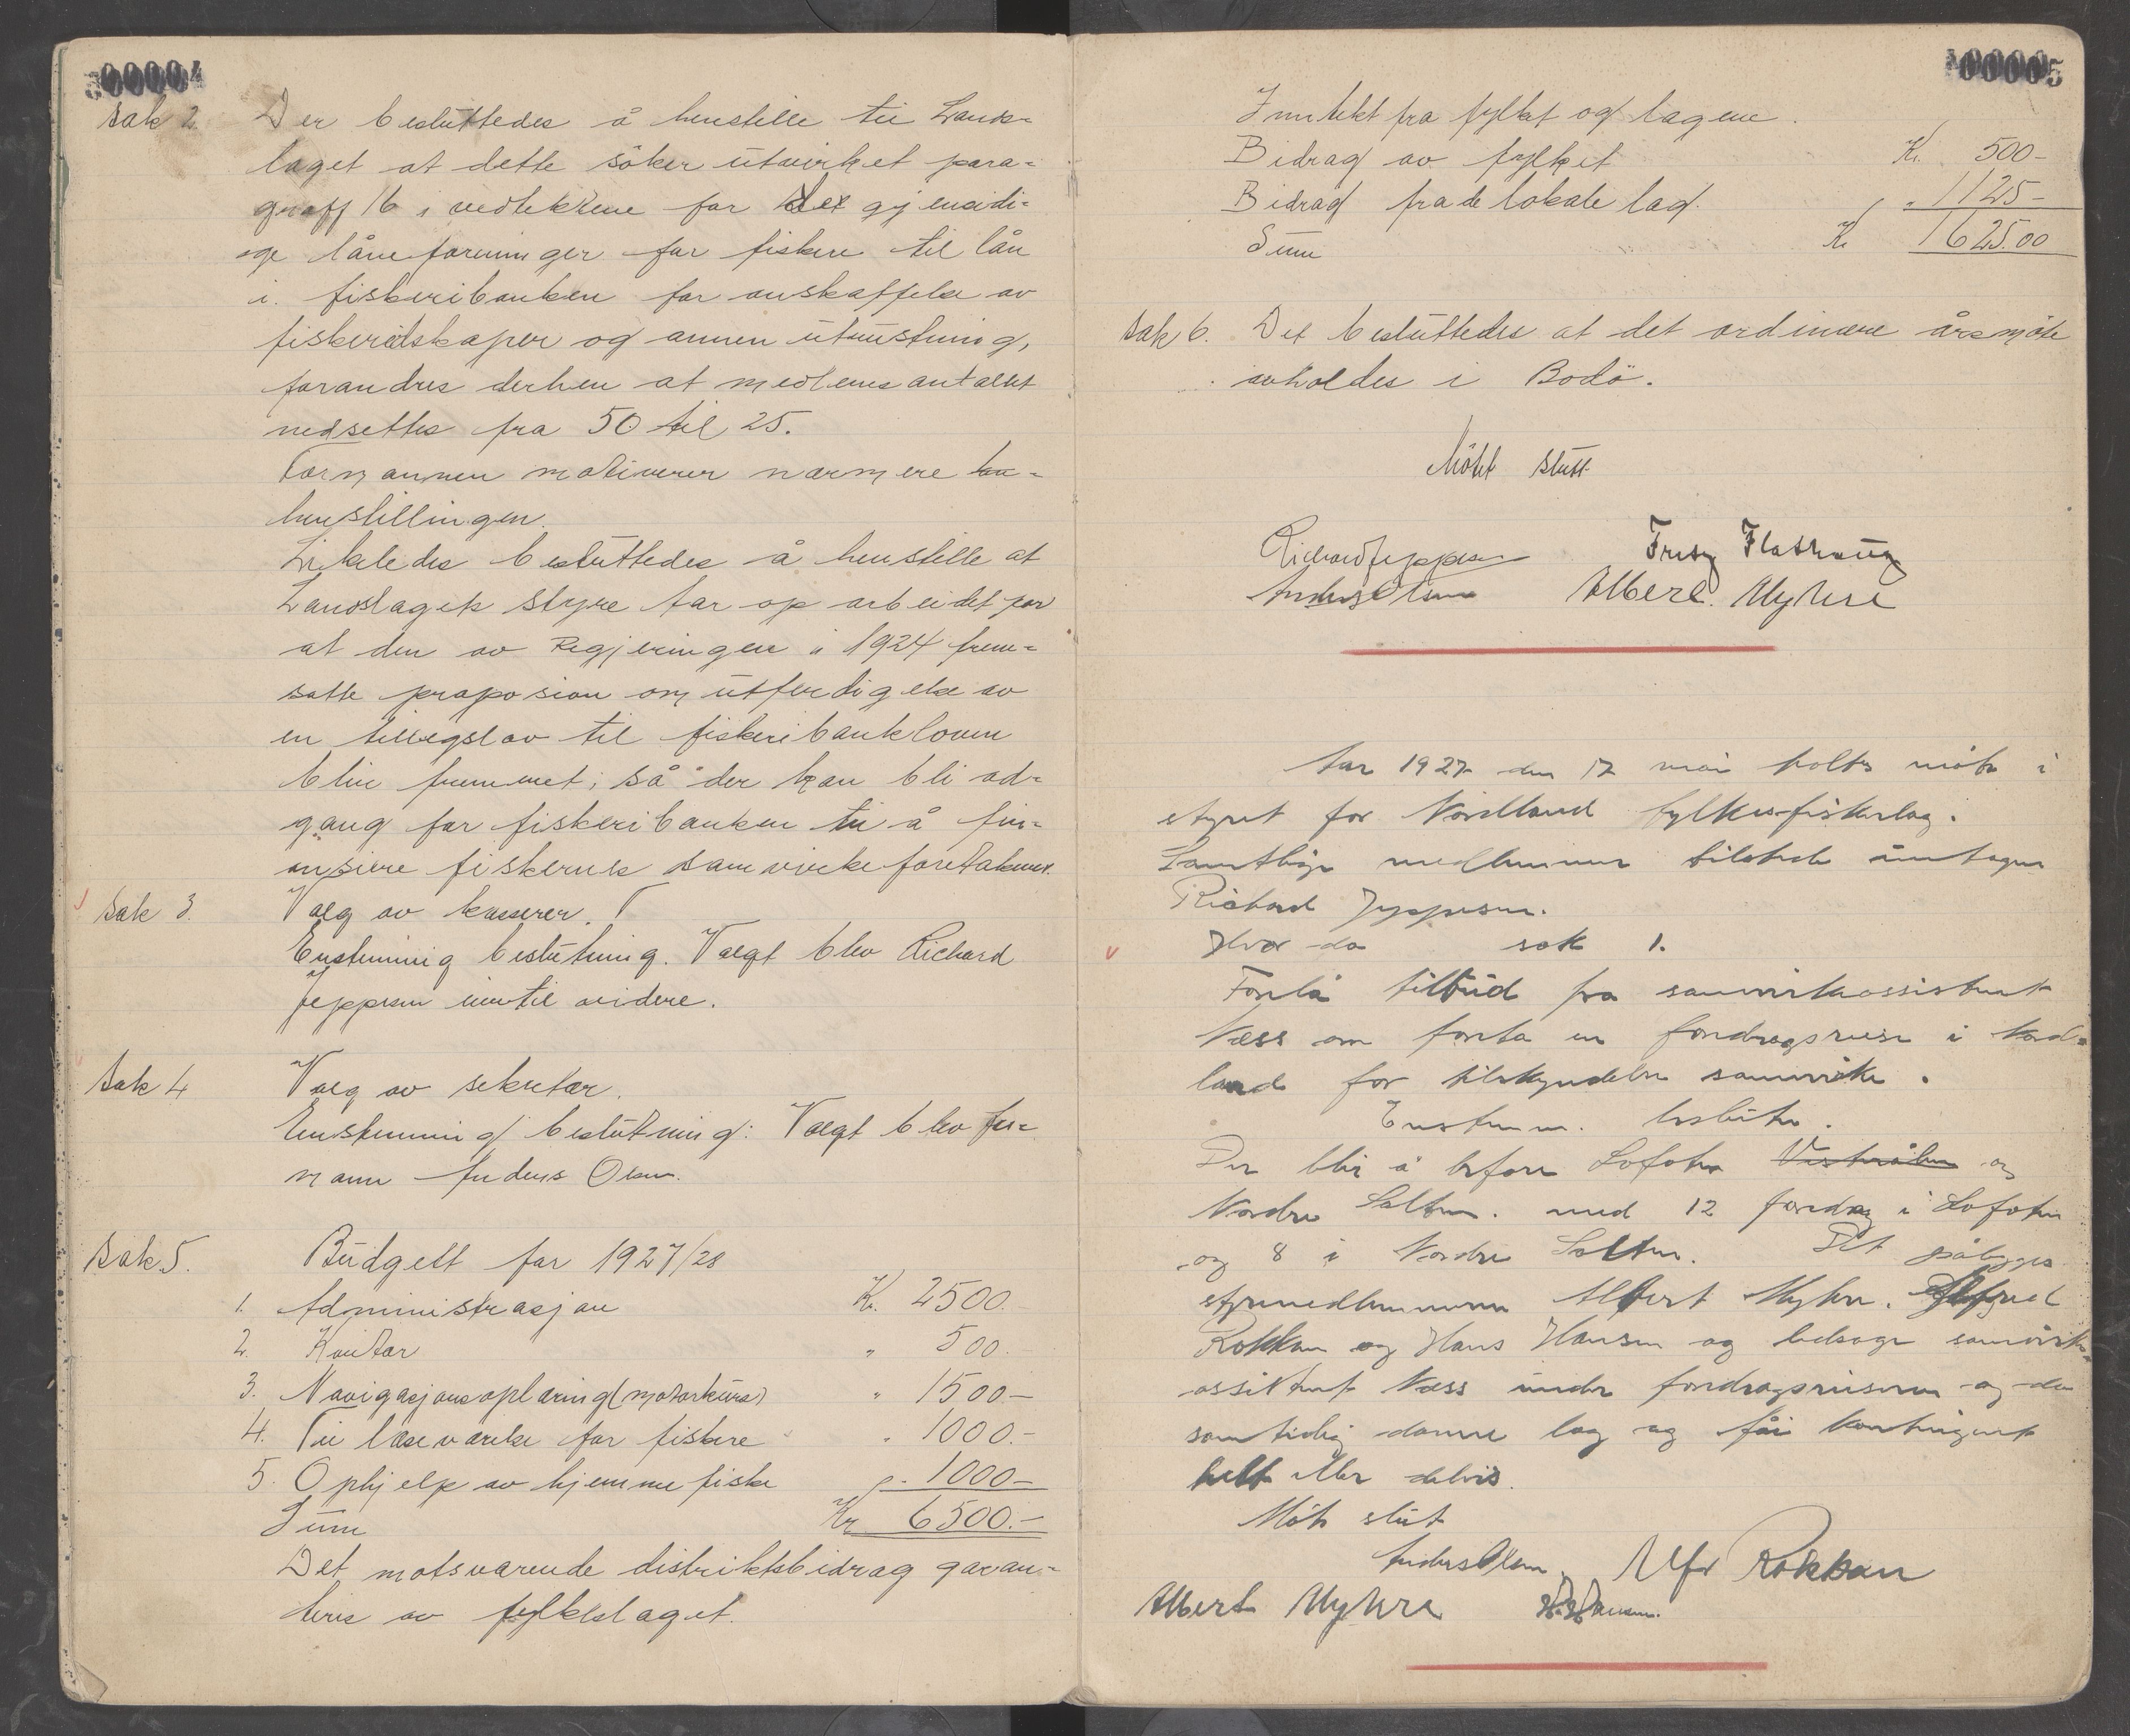 00004
Sak 2. Der besluttedes å henstille til Lands-
laget at dette söker utvirket para-
graff 16 i vedtektene for det gjensidi-
ge låneforeninger for fiskere til lån
i fiskeribanken for anskaffelse av
fiskeredskaper og annen utrustning,
forandres derhen at medlemsantallet
nedsettes fra 50 til 25.
Formannen motiverer nærmere
henstillingen.
Likeledes besluttedes å henstille at
Landslagets styre tar op arbeidet for
at den av Regjeringen i 1924 frem-
satte proposion om utferdigelse av
en tilleegslov til fiskeribankloven
blir fremmet; så der kan bli ad-
gang for fiskeribanken til å fin-
ansiere fiskernes samvirkeforetakener.
Sak 3. Valg av kasserer.
Enstemmig beslutning. Valgt blev Richard
Jeppesen inntil videre.
Sak 4 Valg av sekretær.
Enstemmig beslutning: Valgt blev for-
mann Anders Olsen.
Sak 5. Budgett for 1927/28
1. Administrasjon Kr. 2500.
2. Kontor " 500.
3. Navigasjonsoplæring (motorkurs) " 1500-
4. Til læseværelse for fiskere " 1000.-
5. Ophjelp av hjemmefiske " 1000-
Sum Kr 6500.-
Det motsvarende distriktsbidrag garan-
teres av fylkeslaget.
00005
Inntekt fra fylket og lagene.
Bidrag av fylket Kr. 500-
Bidrag fra de lokale lag. " 1125-
Sum Kr 1625.00
Sak 6. Det besluttedes at det ordinære årsmöte
avholdes i Bodö.
Mötet slutt
Richard Jeppesen Fritz
Anders Olsen Albert Myhre
Aar 1927 den 17 mai holdts möte i
styret for Nordland fylkesfiskerlag.
Samtlige medlemmer tilstede untagen
Richard Jeppesen.
Hvor da sak 1.
Forelå tilbud fra samvirkeassistent
Næss om foreta en foredragsreise i Nord-
land for tilskyndelse samvirke.
Enstemm. beslute.
Der blir å befare Lofoten Vesterålen og
Nordre Salten. med 12 foredrag i Lofoten
og 8 i Nordre Salten. Det pålegges
styremedlemmerne Albert Myhre. Alfred
Rokkan og Hans Hansen og ledsage samvirke-
assistent Næss under foredragsreiserne og da
samtidig danne lag og få kontingent
helt eller delvis.
Möte slut
Anders Olsen Alfr Rokkan
Albert Myhre H. Hansen.